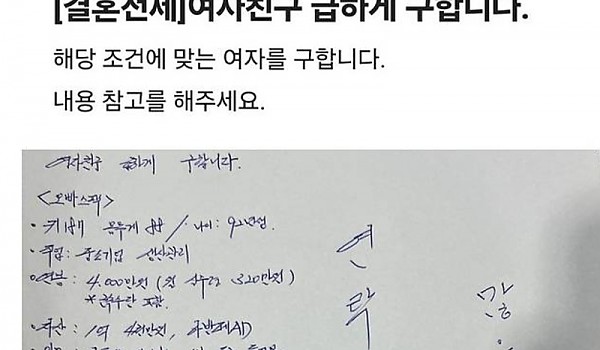 [결혼전제]여자친구 급하게 구합니다.
해당 조건에 맞는 여자를 구합니다.
내용 참고를 해주세요.
여자친구 급하게 구합니다.
<오빠스펙>
· 키 몸무게 / 나이: 92년생
· 직업: 중소기업 생산관리
· 연봉: 4,000만원 (월 실수령 320만원)
* 특수당 포함.
· 자산: 1억 4천만원,
연
락